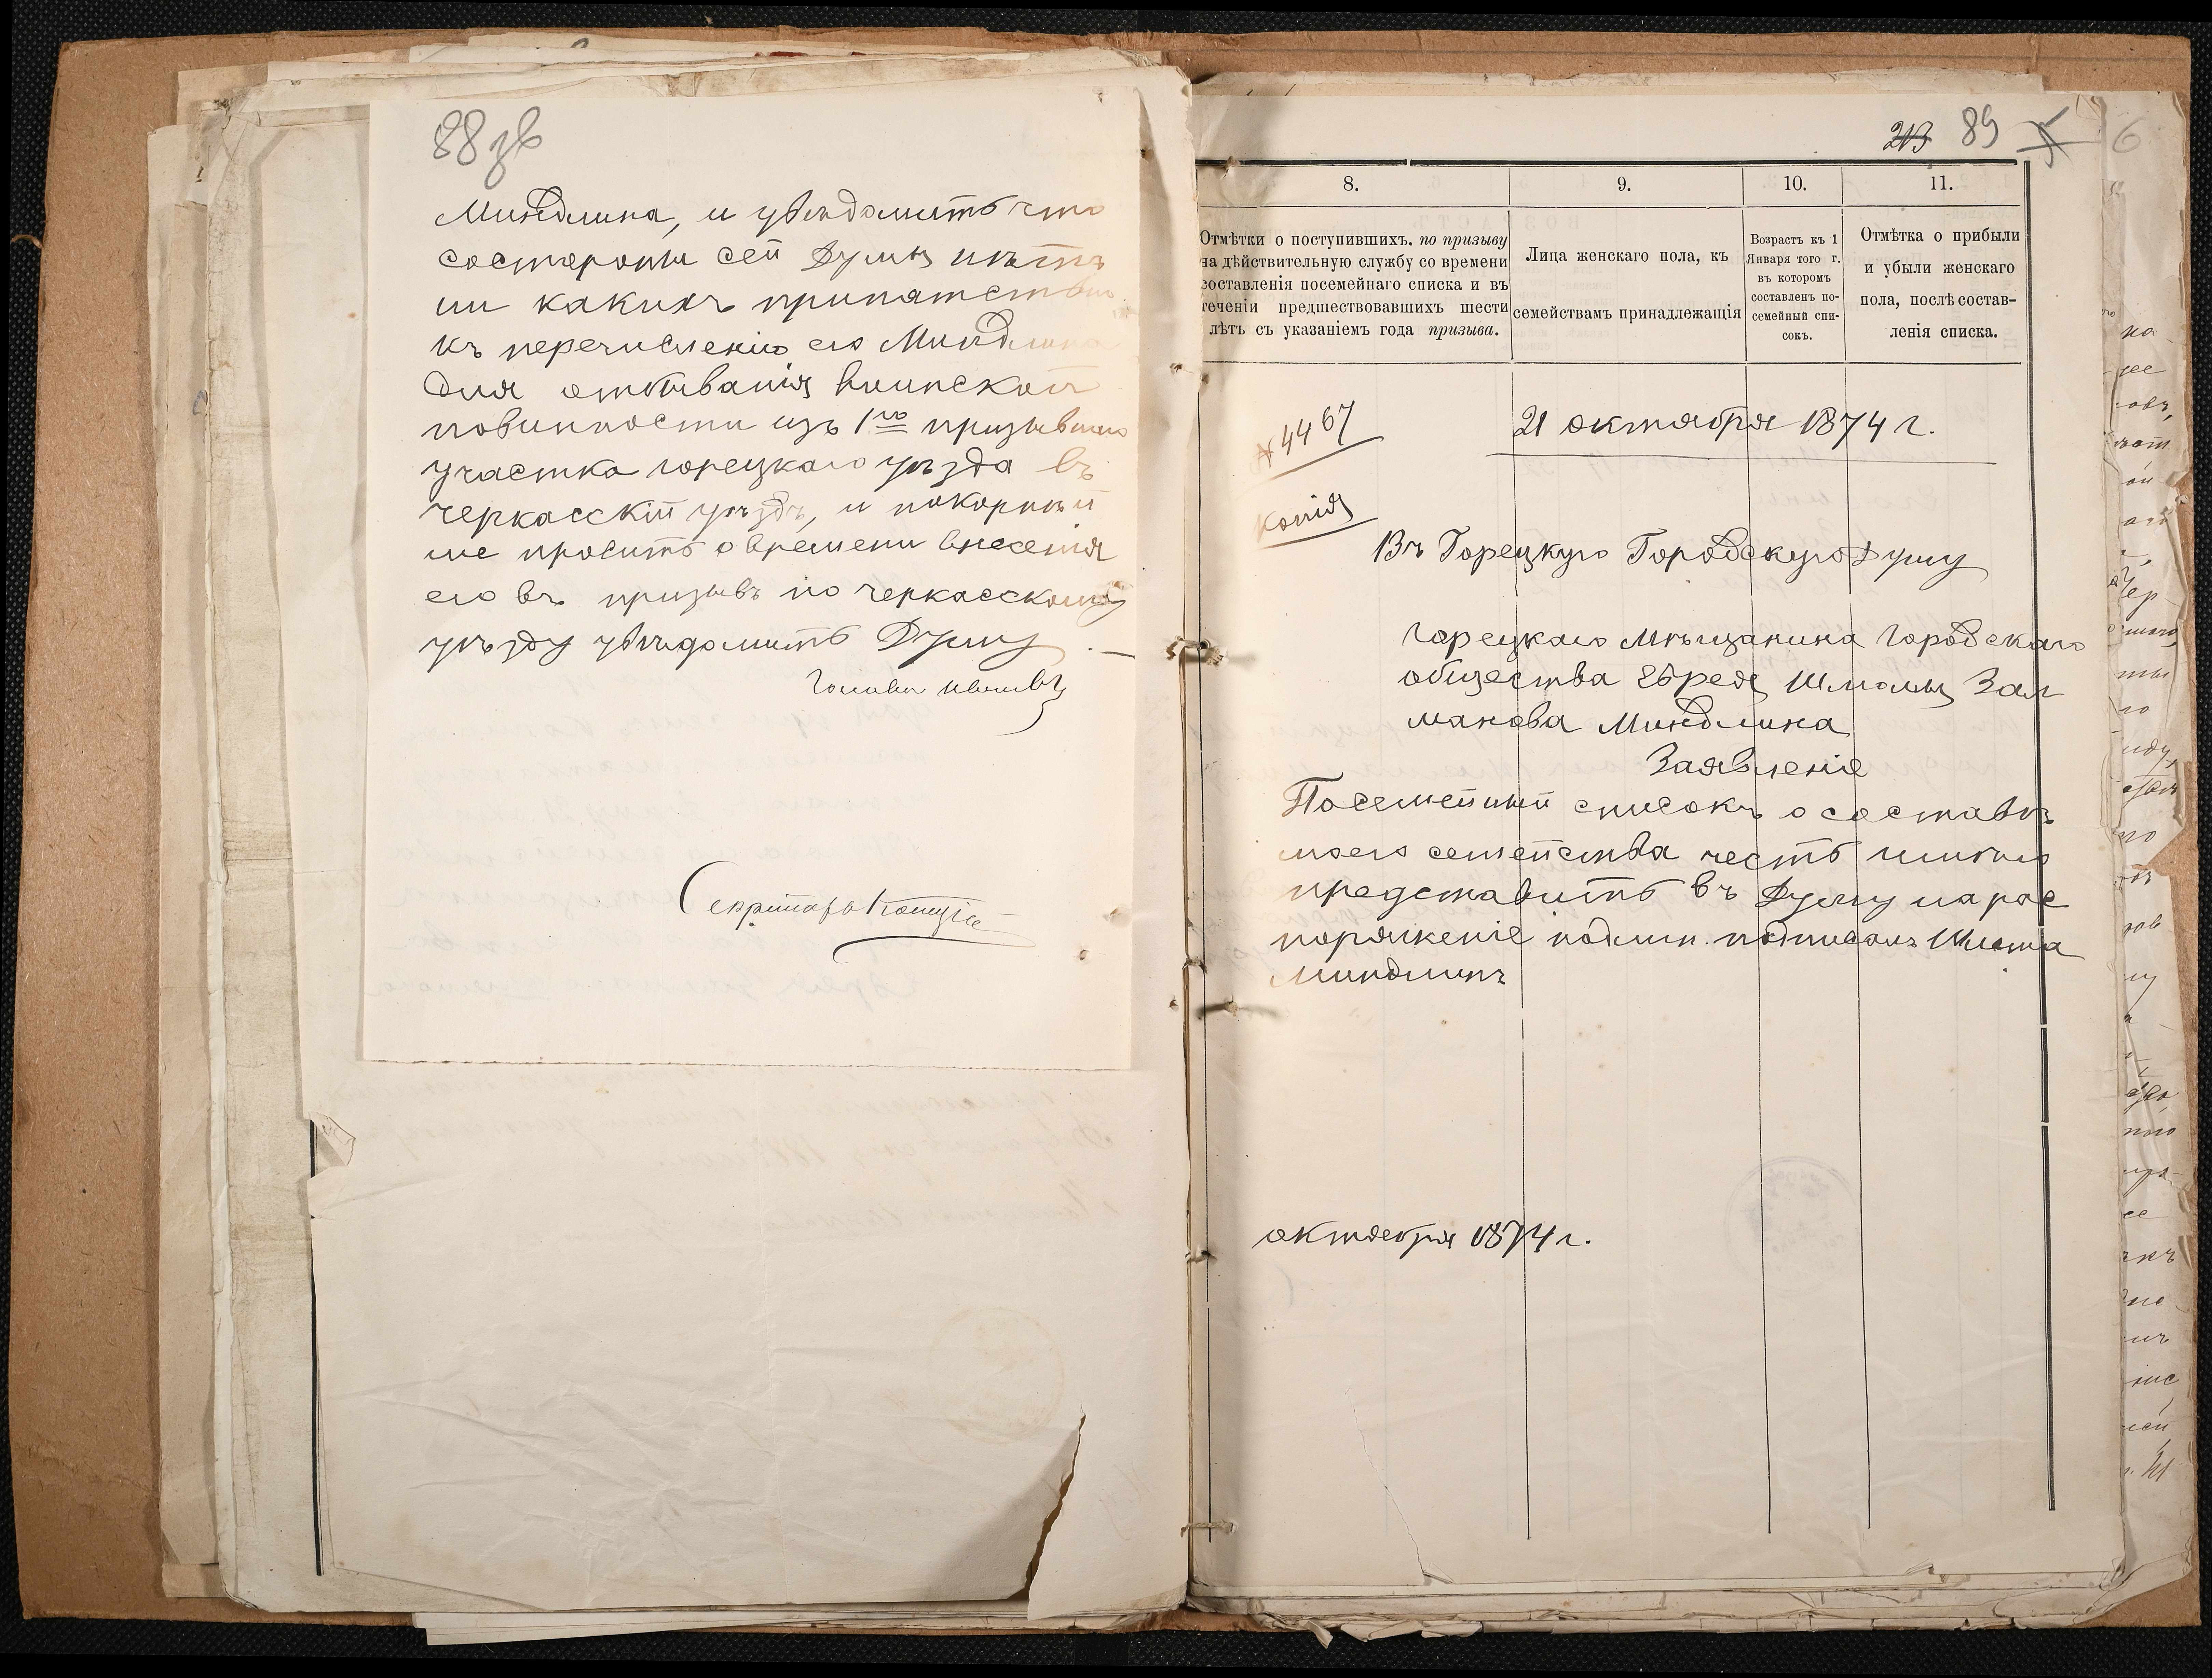 88 зв
Миндлина, и увѣдомить что
состороны сей Думы нѣтъ
ни какихъ припятствiй
къ перечисленiю его Миндлина
для отбыванiя воинской
повинности изъ 1го призывнаго
участка горецкаго уѣзда въ
черкасскiй уѣздъ, и покорнѣй
ше просить о времени внесенiя
его въ призывъ по черкасскому
уѣзду увѣдомить Думу. —
Голова
Секретарь
213 89
8. 9. 10. 11.
Отмѣтки о поступившихъ. по призыву
на дѣйствительную службу со времени
составленія посемейнаго списка и въ
теченіи предшествовавшихъ шести
лѣтъ съ указаніемъ года призыва.
Лица женскаго пола, къ
семействамъ принадлежащія
Возрастъ къ 1
Января того г.
въ которомъ
составленъ по-
семейный спи-
сокъ.
Отмѣтка о прибыли
и убыли женскаго
пола, послѣ состав-
ленія списка.
№ 4467
21 октября 1874 г.
Копія
Въ Горецкую Городскую Думу
горецкаго мѣщанина городскаго
общества Еврея Шломы Зал
манова Миндлина
Заявленіе
Посемейный списокъ о составѣ
моего семейства честь имѣю
представить въ Думу на рас
поряженіе подлин. подписалъ Шлома
Миндлинъ
октября 1874 г.